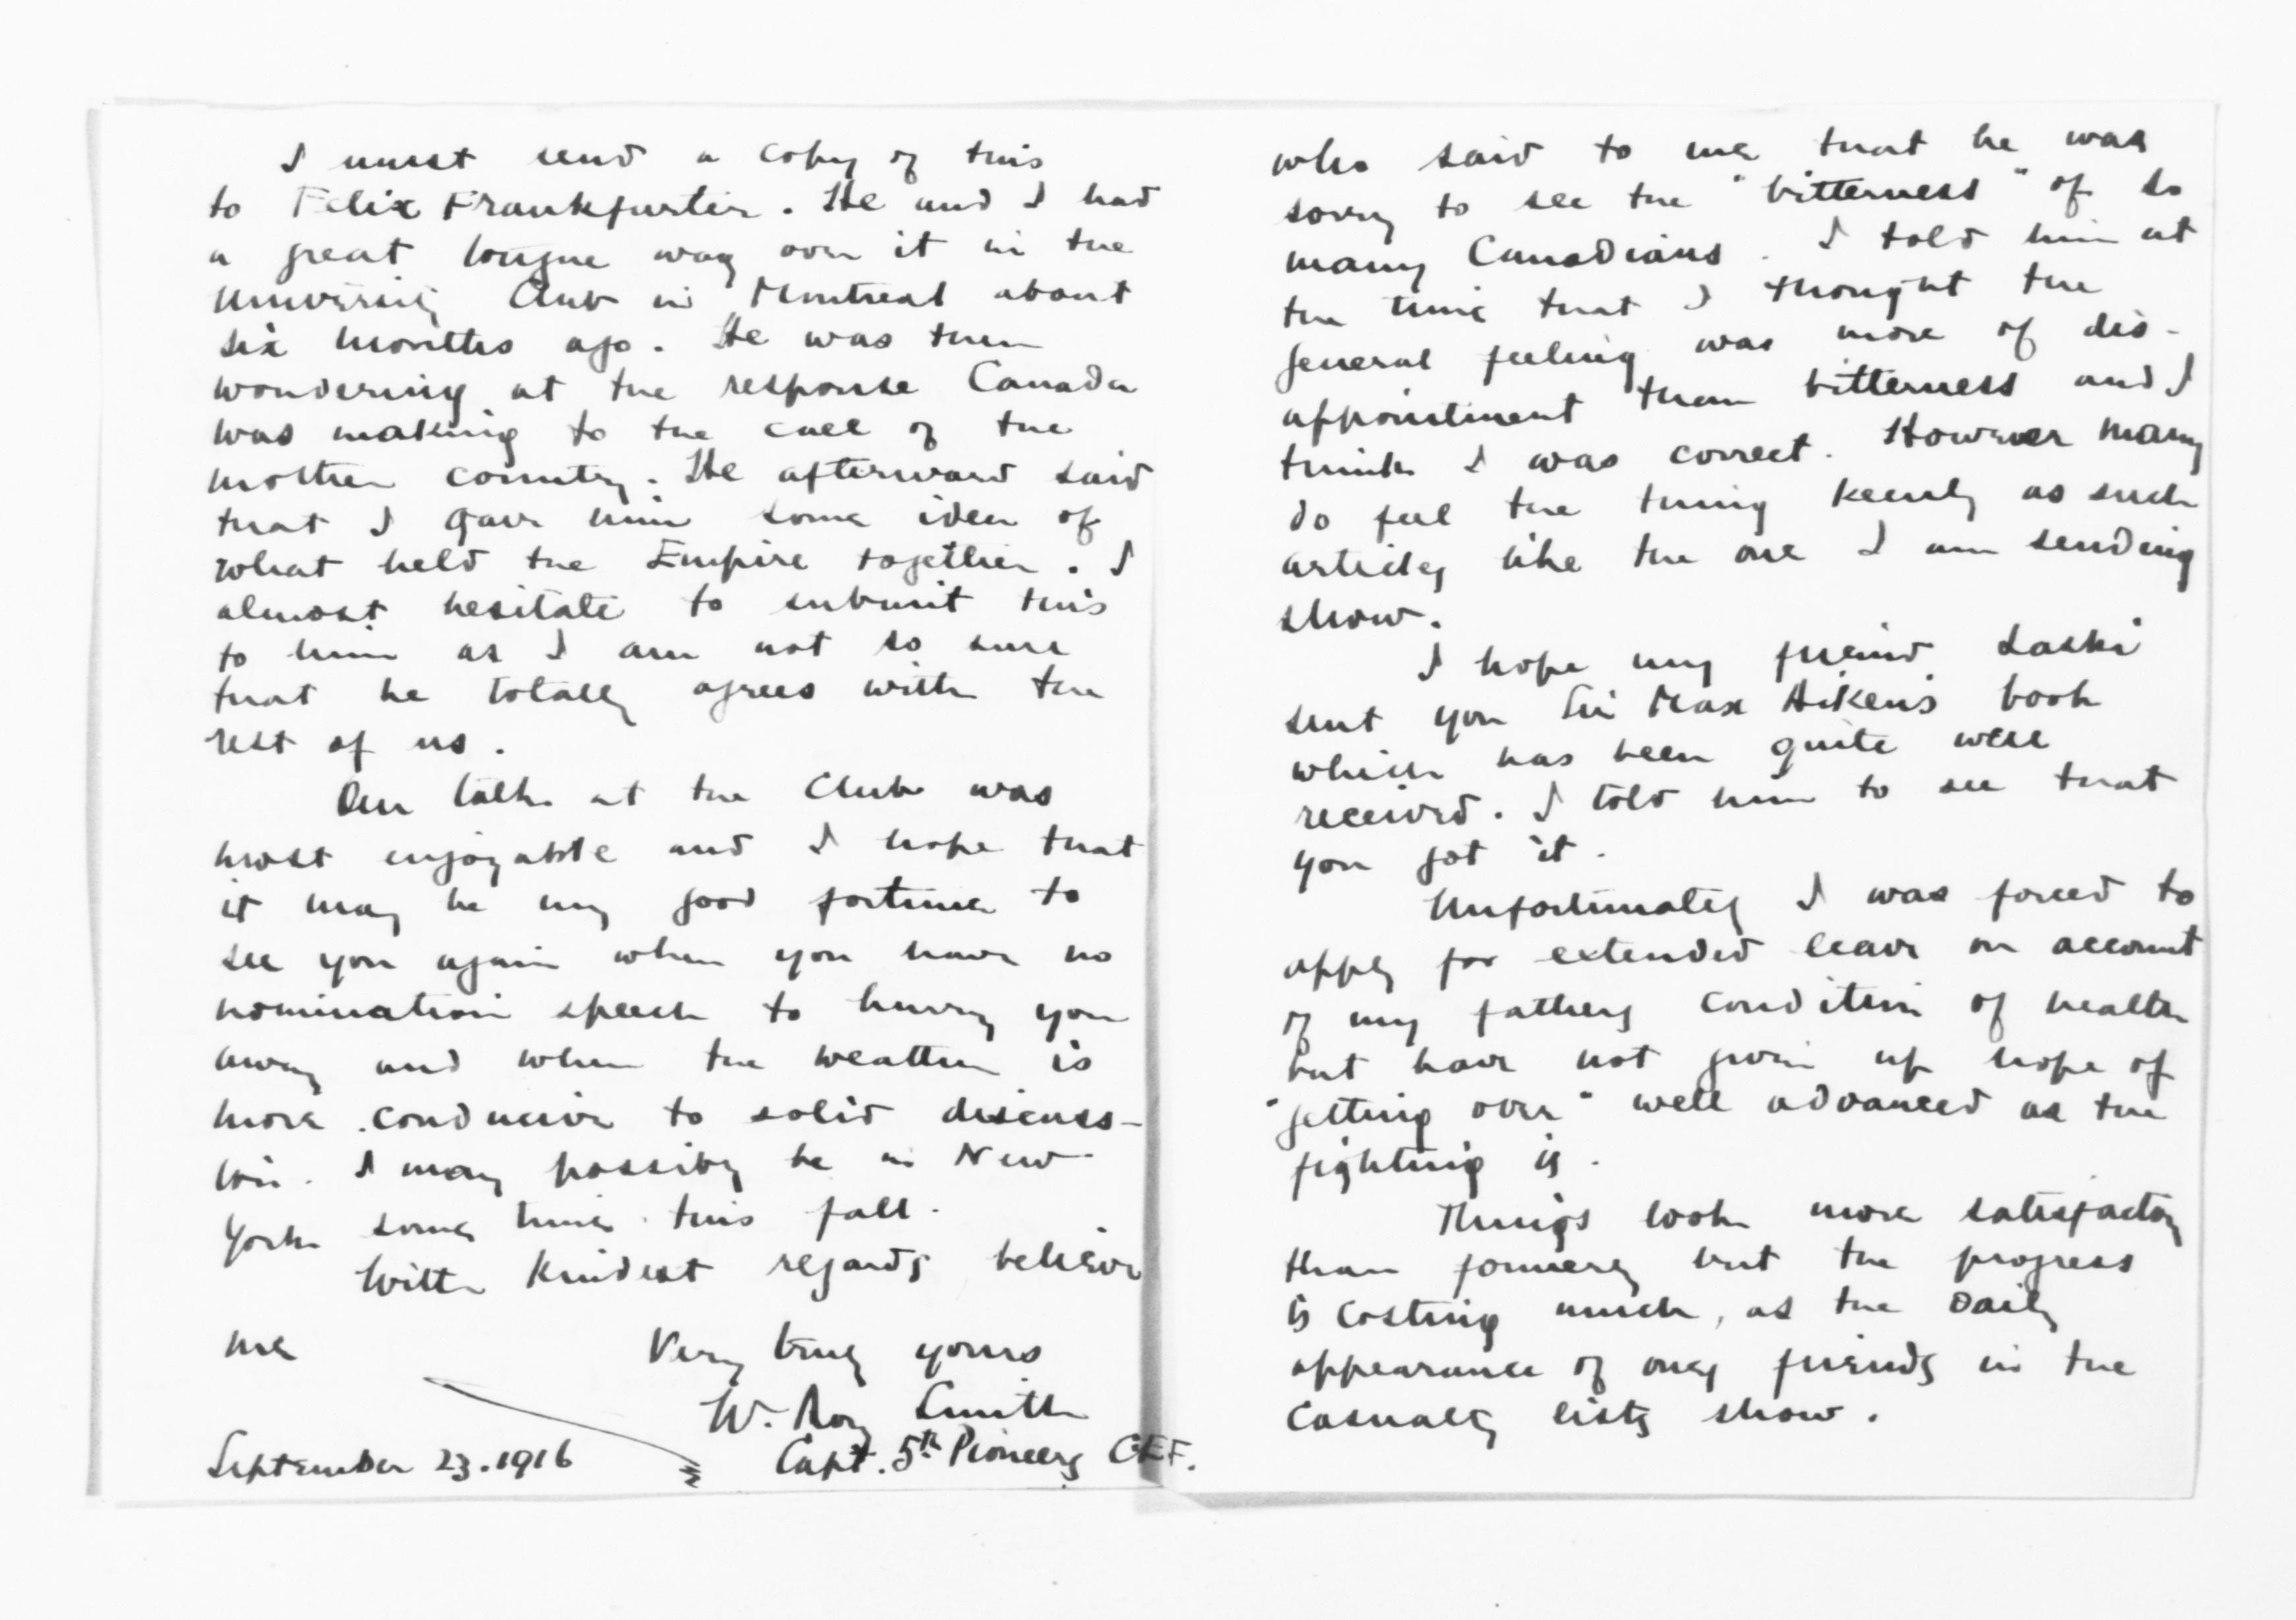 I must send a copy of this
to Felix Frankfurter. He and I had
a great tongue wag over it in the
University Club in Montreal about
six months ago. He was then
wondering at the response Canada
was making to the call of the
mother country. He afterward said
that I gave him some idea of
what held the Empire together. I
almost hesitate to submit this
to him as I am not so sure
that he totally agrees with the
rest of us.
Our talk at the Club was
most enjoyable and I hope that
it may be my good fortune to
see you again when you have no
nomination speech to hurry you
away and when the weather is
more conducive to solid discuss-
ion. I may possibly be in New
York some time this fall.
With kindest regards believe
me
Very truly yours
W. Roy Smith
Capt. 5th Pioneers CEF.
September 23. 1916
who said to me that he was
sorry to see the "bitterness" of so
many Canadians. I told him at
the time that I thought the
general feeling was more of dis-
appointment than bitterness and I
think I was correct. However many
do feel the thing keenly as such
articles like the one I am sending
show.
I hope my friend Laski
sent you Sir Max Aiken's book
which has been quite well
received. I told him to see that
you got it.
Unfortunately I was forced to
apply for extended leave on account
of my fathers condition of health
but have not given up hope of
"getting over" well advanced as the
fighting is.
Things look more satisfactory
than formerly but the progress
is costing much, as the daily
appearance of ones friends in the
casualty lists show.